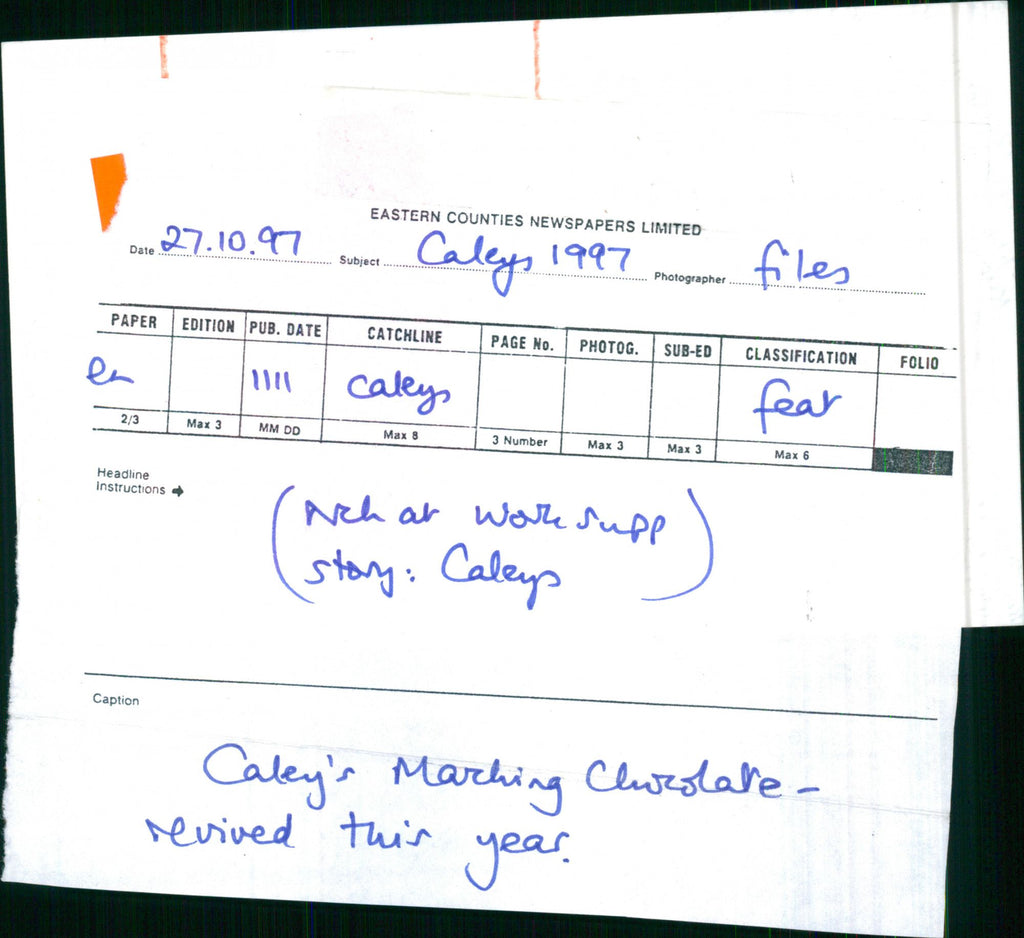 EASTERN COUNTIES NEWSPAPERS LIMITED
Date 27.10.97 Subject Caleys 1997 Photographer files
PAPER EDITION PUB. DATE CATCHLINE PAGE No. PHOTOG. SUB-ED CLASSIFICATION FOLIO
en 1111 caleys feat
2/3 Max 3 MM DD Max 8 3 Number Max 3 Max 3 Max 6
Headline
Instructions →
(Nch at Work supp
story: Caleys)
Caption
Caley's Marching Chocolate -
revived this year.